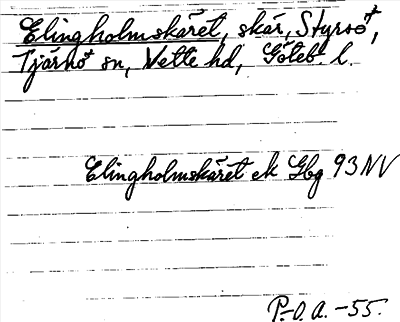 Elingholmskäret, skär, Styrsö+,
Tjärnö+ sn, Vette hd, Göteb. l.
Elingholmskäret ek Gbg 93 NV
P.-O. A. -55.